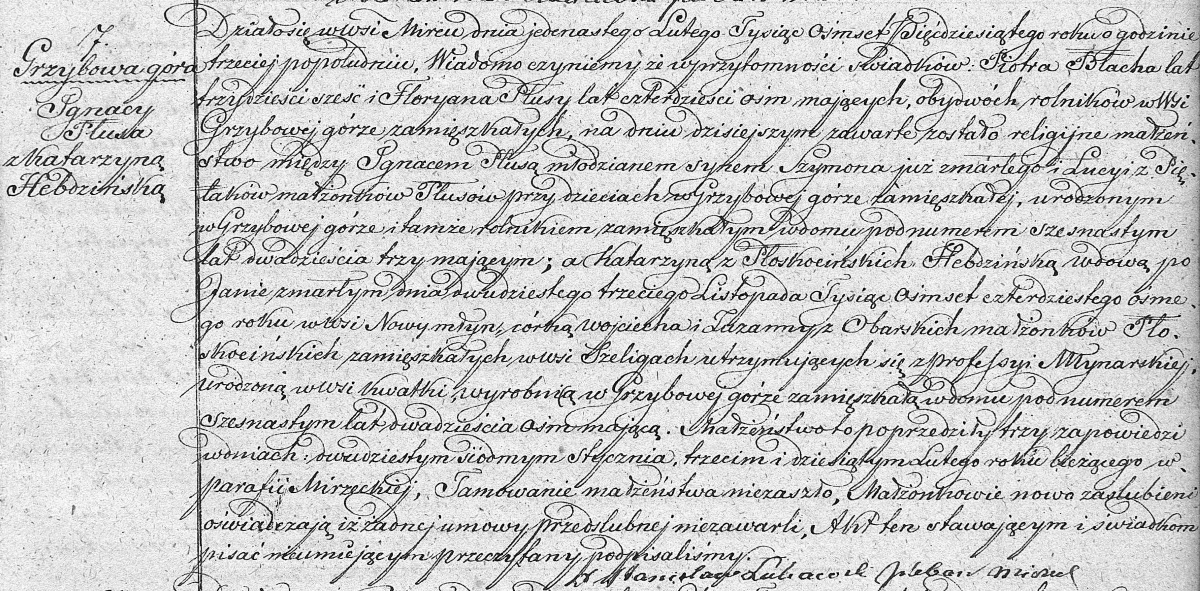 7.
Grzybowa góra
Ignacy
Płusa
z Katarzyną
Hebdzińską
Działo się w wsi Mircu dnia jedenastego Lutego Tysiąc Ośmset Pięćdziesiątego roku o godzinie
trzeciej popołudniu. Wiadomo czyniemy że w przytomności świadków: Piotra Błacha lat
trzydzieści sześć i Floryana Płusy lat czterdzieści ośm mających, obydwóch rolników w Wsi
Grzybowej górze zamięszkałych, na dniu dzisiejszym zawarte zostało religijne małżeń
stwo między Ignacem Płusą młodzianem synem Szymona już zmarłego i Lucyi z Pię-
taków małżonków Płusów przy dzieciach w Grzybowej górze zamięszkałej, urodzonym
w Grzybowej górze i tamże rolnikiem zamięszkałym w domu pod numerem szesnastym
lat dwadzieścia trzy mającym; a Katarzyną z Płoskocińskich Hebdzińską wdową po
Janie zmarłym dnia dwudziestego trzeciego Listopada Tysiąc Ośmset czterdziestego ósme
go roku w wsi Nowy młyn, córką Wojciecha i Zuzanny z Obarskich małżonków Pło-
skocińskich zamięszkałych w wsi Szeligach utrzymujących się z professyi Młynarskiej,
urodzoną w wsi Kwatki, wyrobnicą w Grzybowej górze zamięszkałą w domu pod numerem
szesnastym lat dwadzieścia ośm mającą. Małżeństwo to poprzedziły trzy zapowiedzi
w dniach: dwudziestym siódmym Stycznia, trzecim i dziesiątym Lutego roku bieżącego w
parafii Mirzęckiej, Tamowanie małżeństwa niezaszło, Małżonkowie nowo zaślubieni
oświadczają iż żadnej umowy przedślubnej niezawarli, Akt ten stawającym i świadkom
pisać nieumiejącym przeczytany podpisaliśmy.
X. Stanisław Pleban